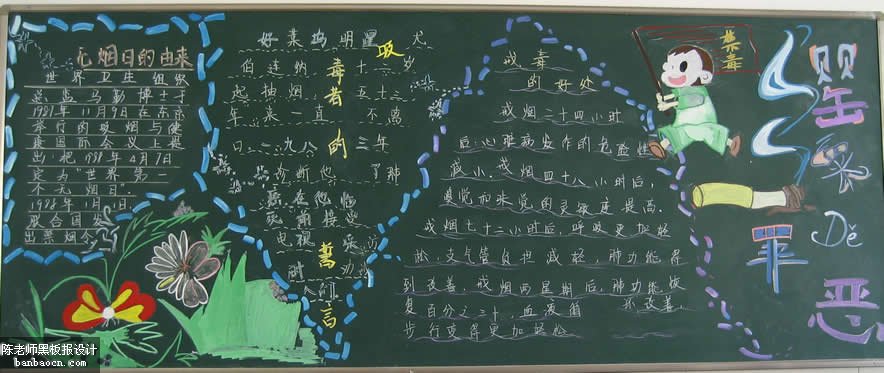 无烟日的由来
世界卫生组织
总监马勒博士于
1987年11月9日在东京
举行的吸烟与健
康国际会议上提
出:把1988年4月7日
定为"世界第一
个无烟日"
1988年1月1日,
联合国发
出禁烟令
好莱坞明星
伯连纳 十二岁
起抽烟 五十三
年来一直 不离
口 一九八 三年
诊断他 了肺
癌 在他临
死前接受
电视
吸毒者的誓言
戒毒
的好处
戒烟二十四小时
后,心脏病发作的危险性
减小。戒烟四十八小时后,
嗅觉和味觉的灵敏度提高。
戒烟七十二小时后,呼吸更加轻
松,支气管负担减轻,肺功能得
到改善。戒烟两星期后,肺功能恢
复百分之三十,血液循环改善,
步行变得更加轻松
禁毒
罂粟 Dē 罪恶
陈老师黑板报设计
banbaocn.com